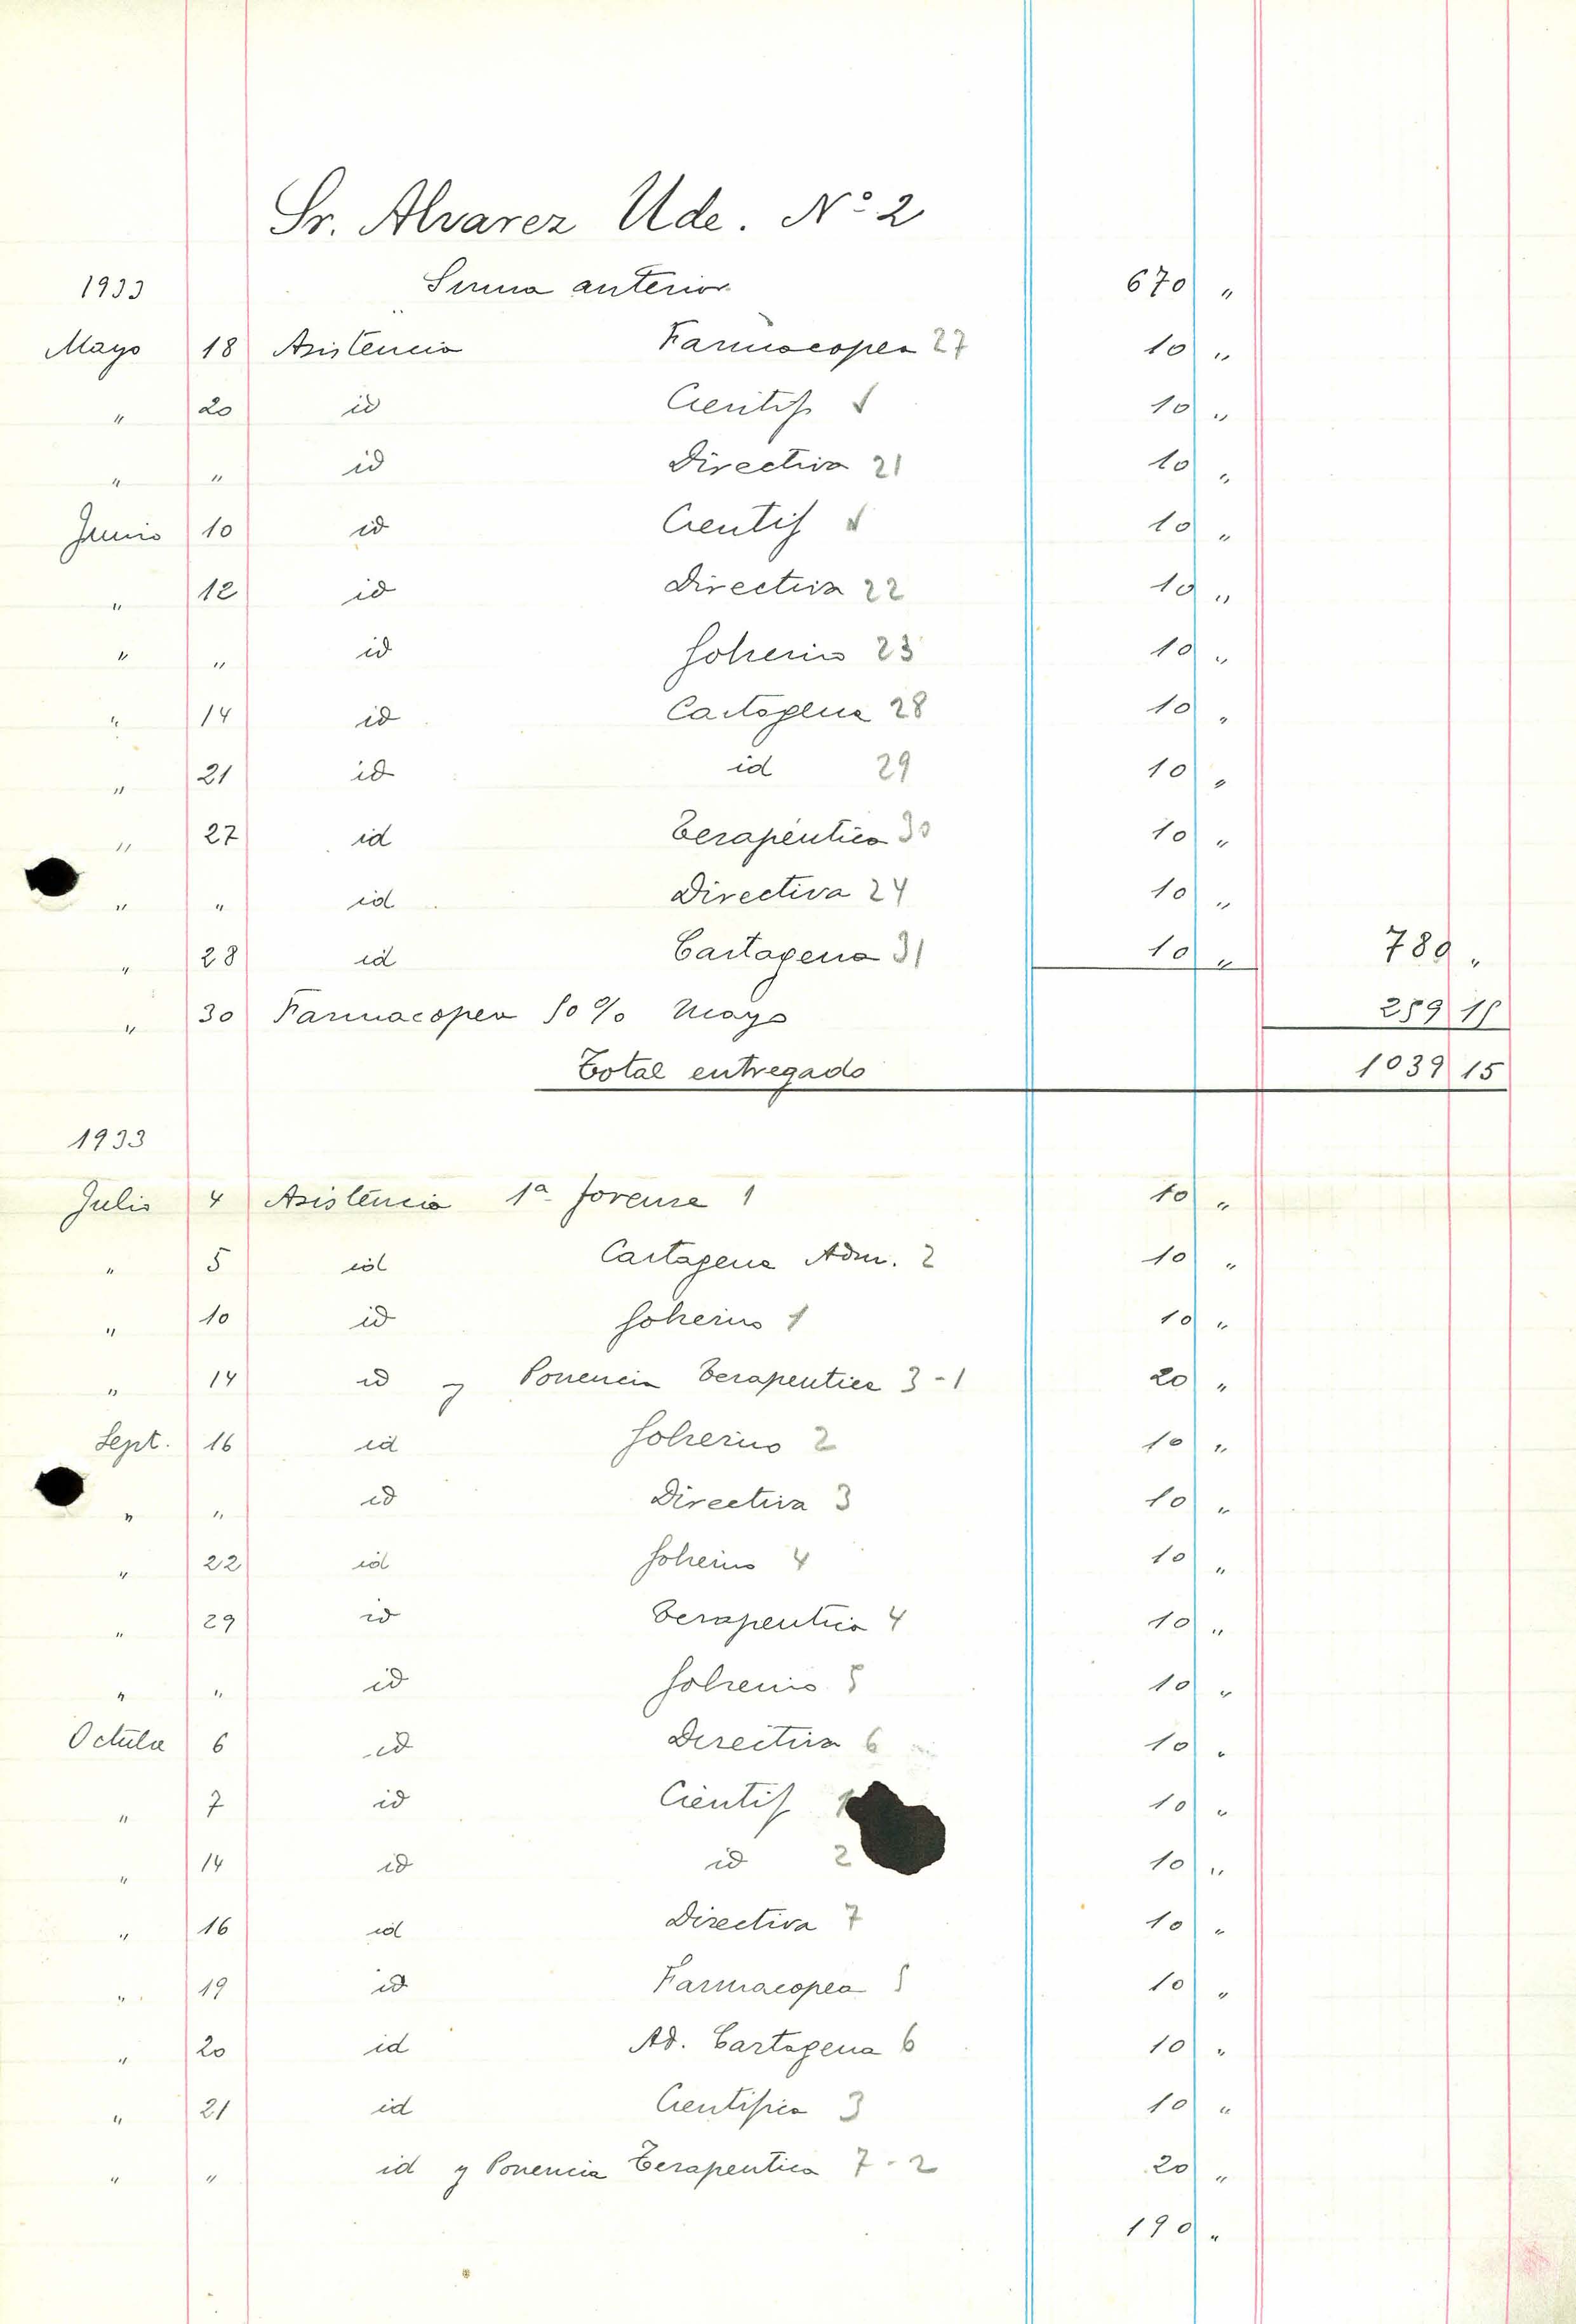 Sr. Alvarez Ude. Nº 2
1933 Suma anterior 670 "
Mayo 18 Asistencia Farmacopea 27 10 "
" 20 id Cientif 10 "
" " id Directiva 21 10 "
Junio 10 id Cientif 10 "
" 12 id Directiva 22 10 "
" " id Gobierno 23 10 "
" 14 id Cartagena 28 10 "
" 21 id id 29 10 "
" 27 id Terapéutica 30 10 "
" " id Directiva 24 10 "
" 28 id Cartagena 31 10 " 780 "
" 30 Farmacopea 50 % Mayo 259 15
Total entregado 1039 15
1933
Julio 4 Asistencia 1ª forense 1 10 "
" 5 id Cartagena Adm. 2 10 "
" 10 id Gobierno 1 10 "
" 14 id y Ponencia Terapeutica 3-1 20 "
Sept. 16 id Gobierno 2 10 "
" " id Directiva 3 10 "
" 22 id Gobierno 4 10 "
" 29 id Terapeutica 4 10 "
" " id Gobierno 5 10 "
Octubre 6 id Directiva 6 10 "
" 7 id Cientif 1 10 "
" 14 id id 2 10 "
" 16 id Directiva 7 10 "
" 19 id Farmacopea 5 10 "
" 20 id Ad. Cartagena 6 10 "
" 21 id Cientifica 3 10 "
" " id y Ponencia Terapeutica 7-2 20 "
190 "